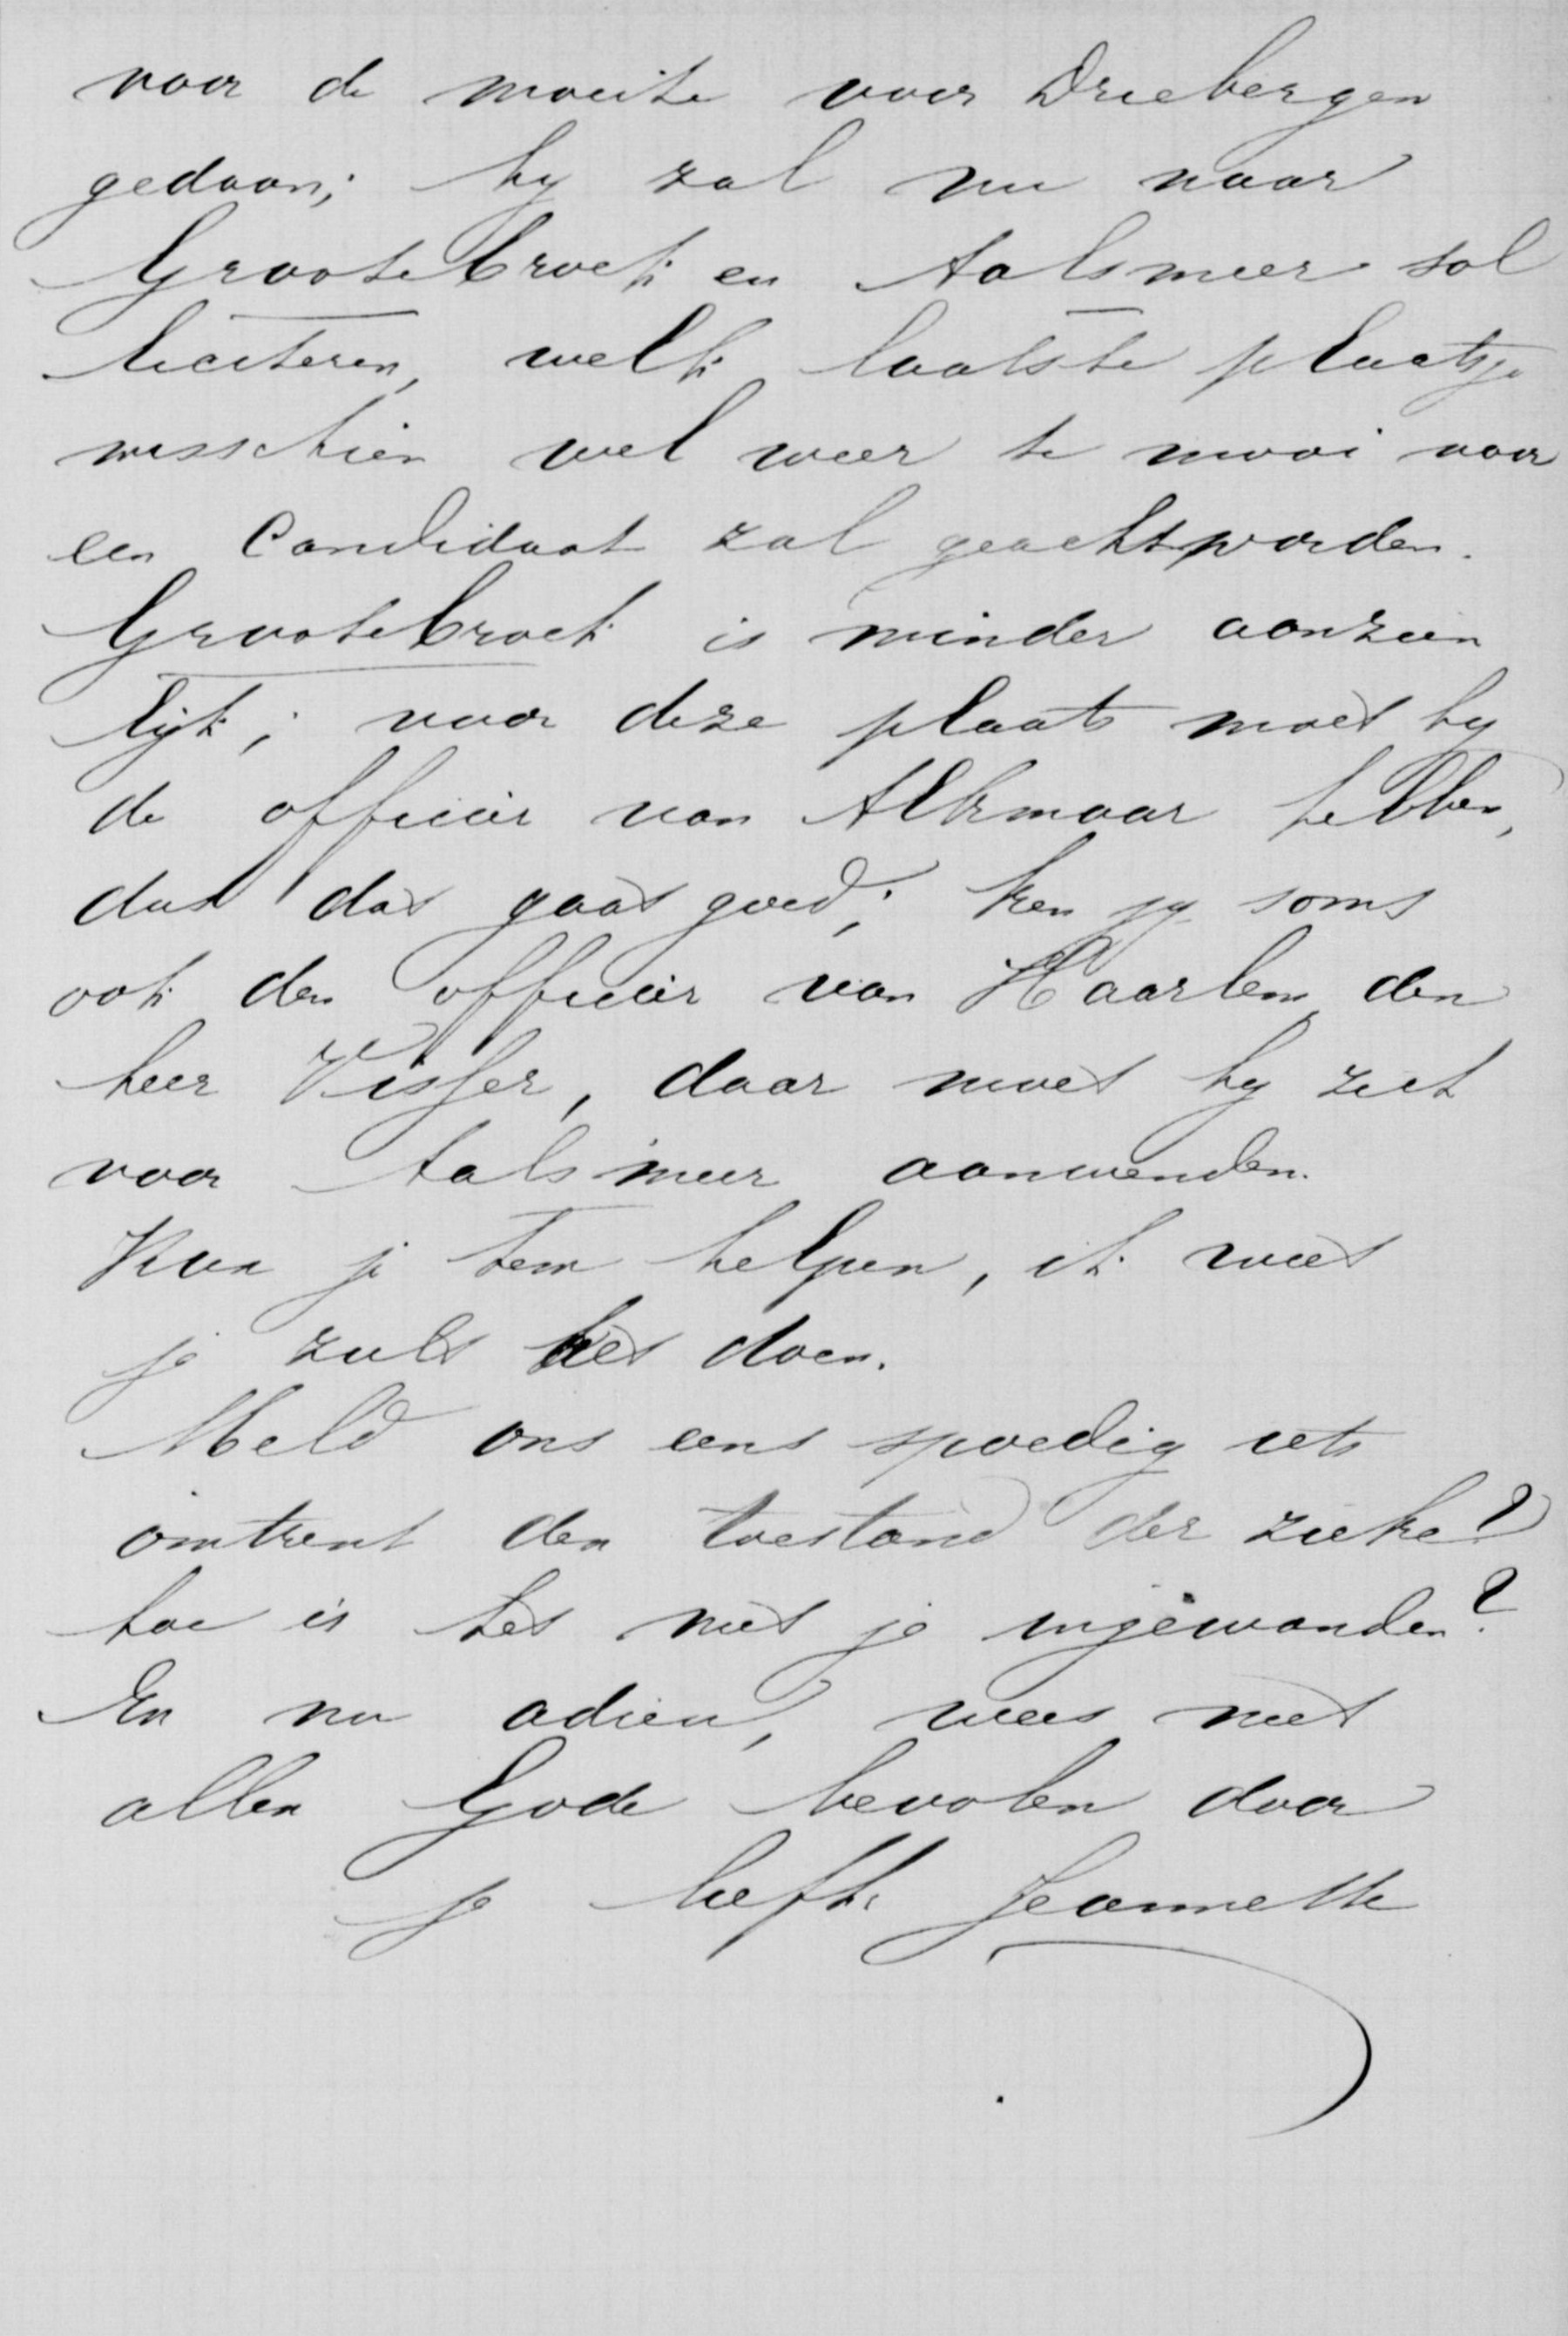 voor de moeite voor Driebergen
gedaan; hy zal nu naar
Grootebroek en Aalsmeer sol
liciteren, welk laatste plaatsje
misschien wel weer te mooi voor
een Candidaat zal geacht worden.
Grootebroek is minder aanzien
lijk; voor deze plaats moet hy
de officier van Alkmaar hebben,
dus dat gaat goed; ken jy soms
ook den officier van Haarlem, den
heer Visser, daar moet hy zich
voor Aalsmeer aanwenden.
Kun je hem helpen, ik weet
je zult het doen.
Meld ons eens spoedig iets
omtrent den toestand der zieke?
hoe is het met je ingewanden?
En nu adieu, wees met
allen Gode bevolen door
je liefh. Jeannette